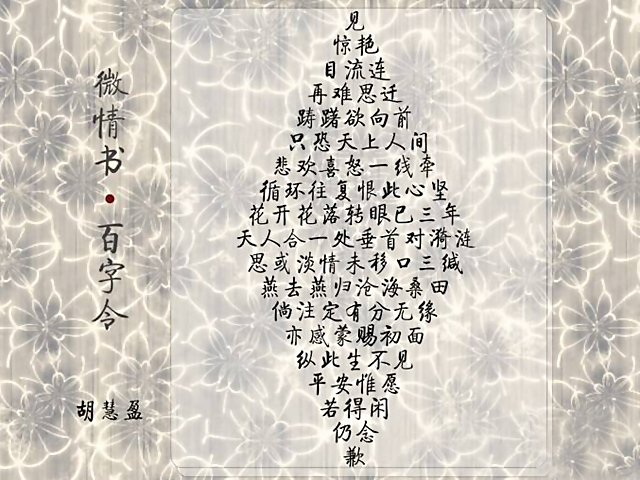 微情书·百字令
胡慧盈
见
惊艳
目流连
再难思迁
踌躇欲向前
只恐天上人间
悲欢喜怒一线牵
循环往复恨此心坚
花开花落转眼已三年
天人合一处垂首对漪涟
思或淡情未移口三缄
燕去燕归沧海桑田
倘注定有分无缘
亦感蒙赐初面
纵此生不见
平安惟愿
若得闲
仍念
歉